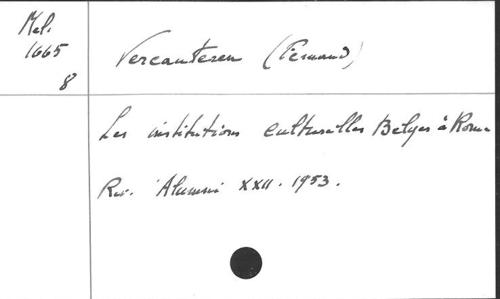 Mel.
1665
8
Vercauteren (Fernand)
Les institutions culturelles Belges à Rome
Rev. Alumni XXII. 1953.